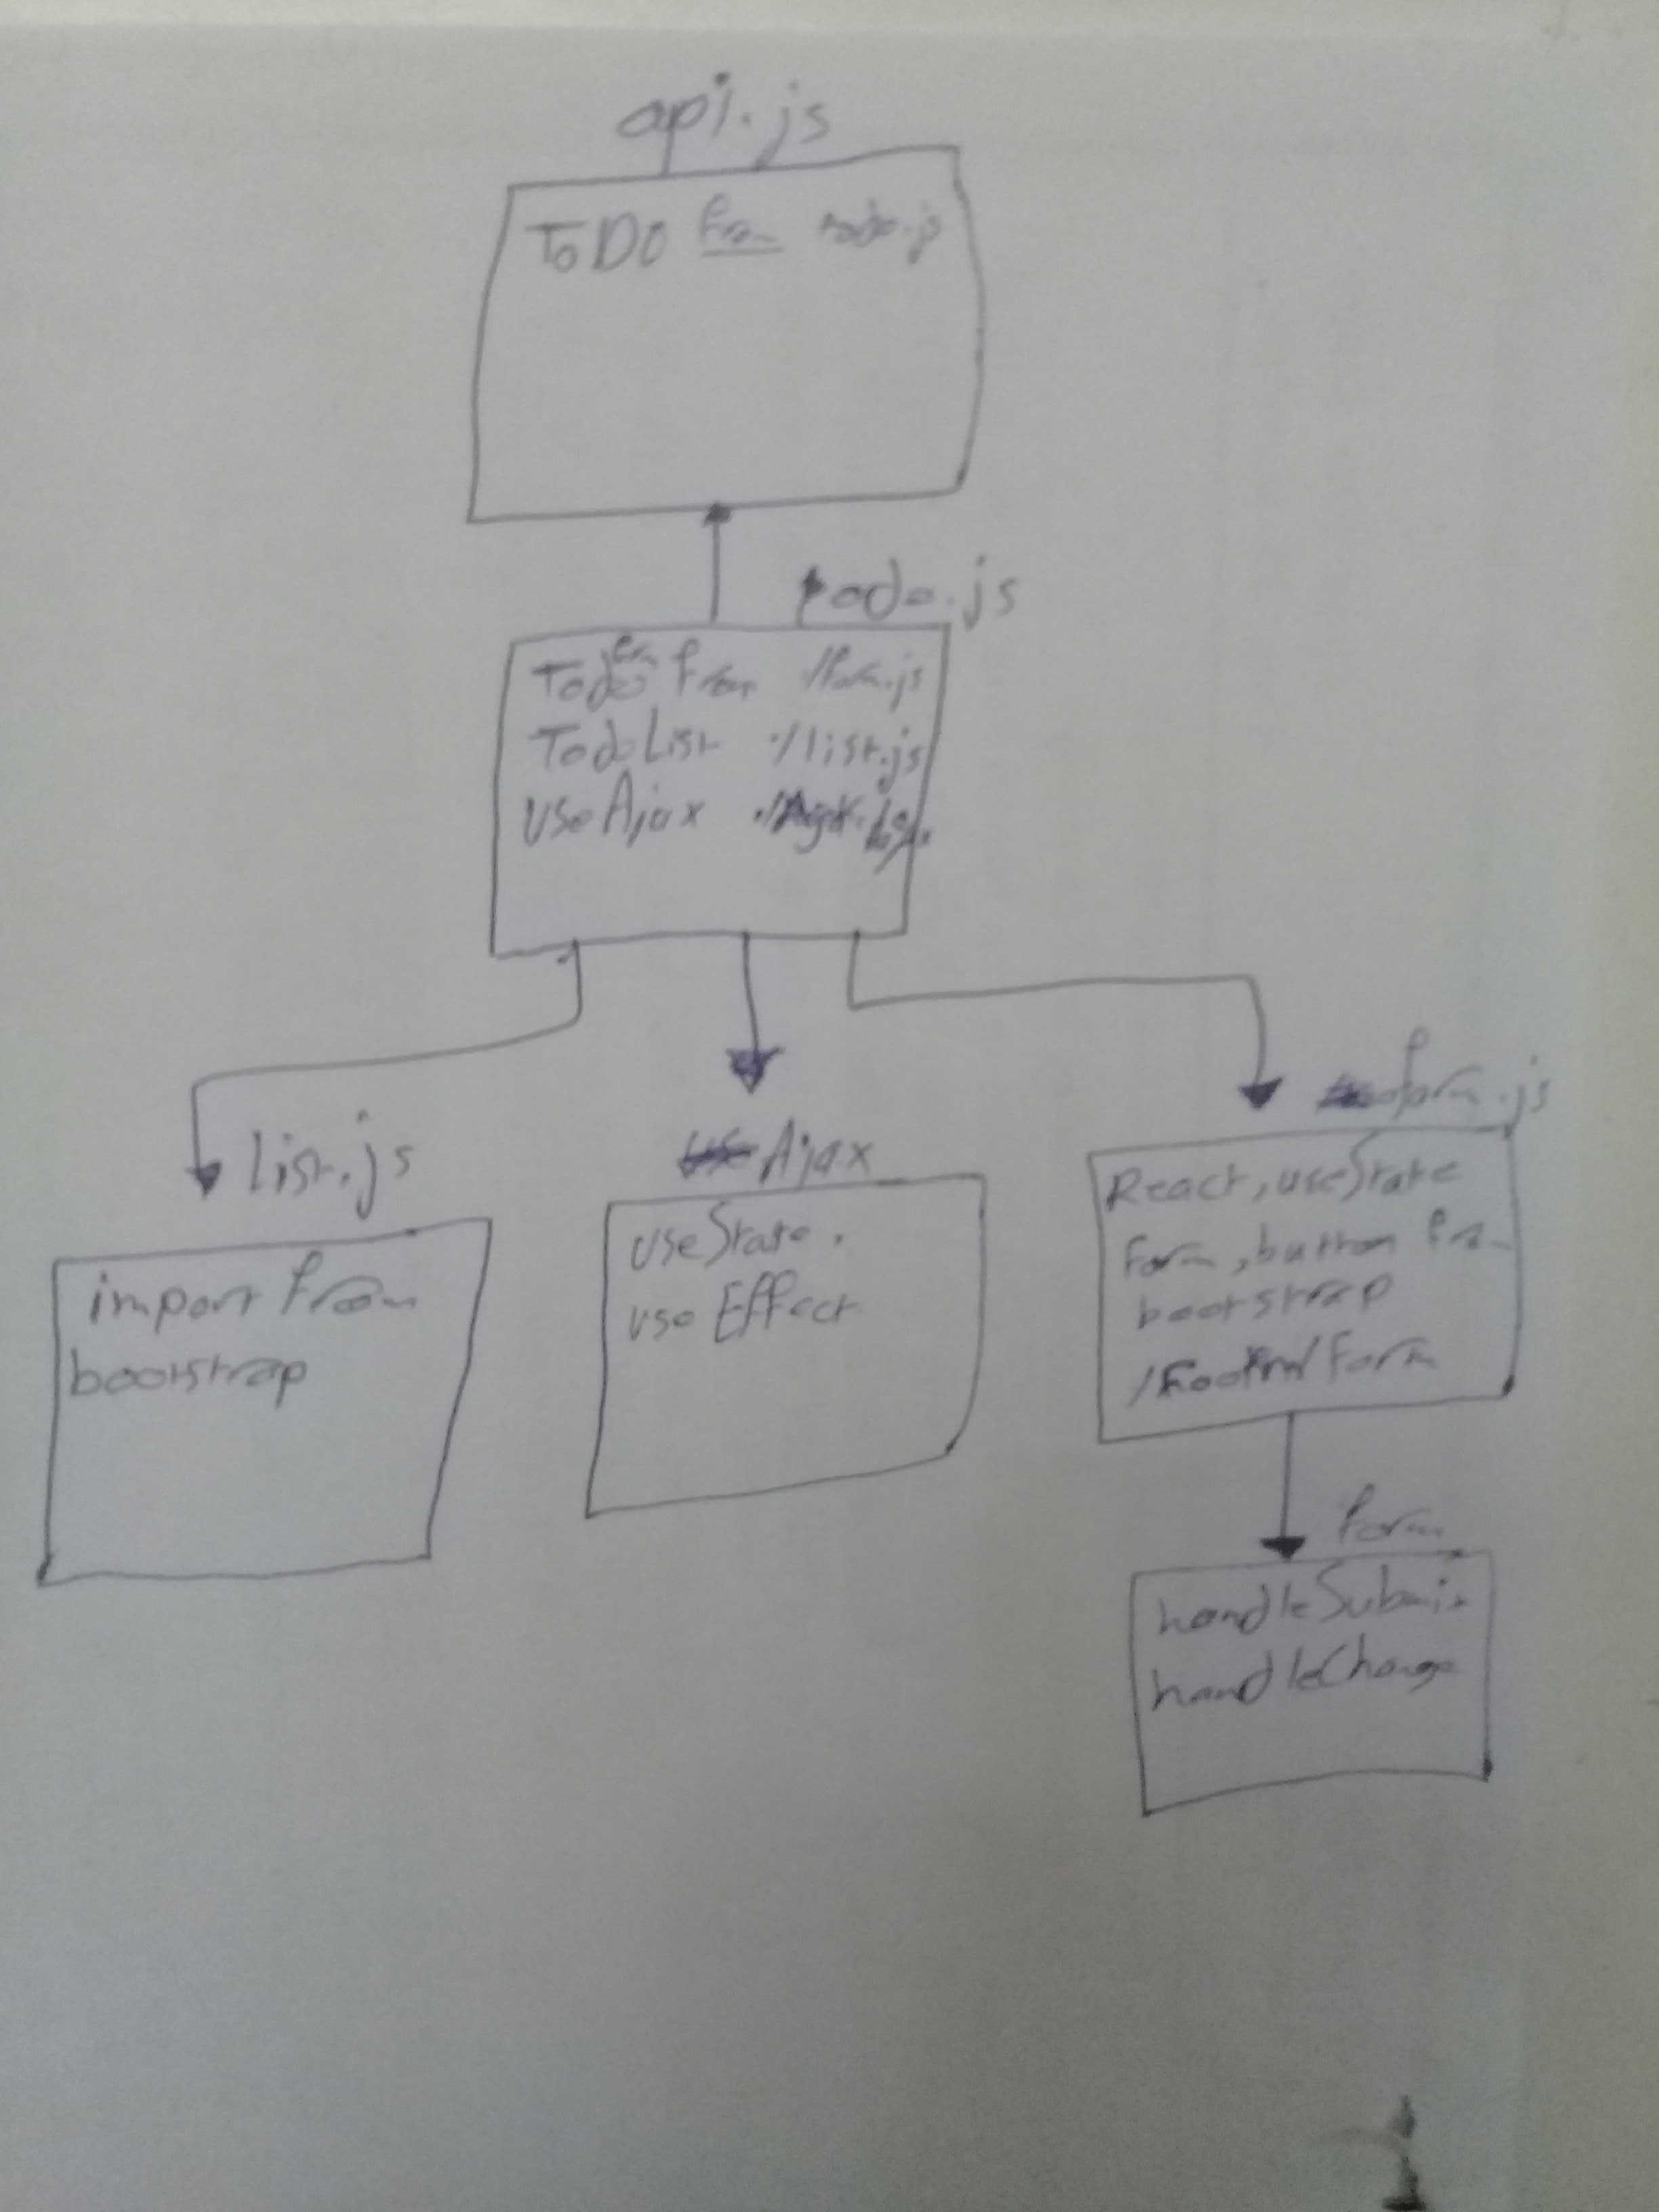 api.js
ToDo from todo.js
todo.js
Todo from ./form.js
TodoList ./list.js
useAjax
list.js
import from
bootstrap
Ajax
useState.
useEffect
form.js
React, useState
Form, button from
bootstrap
Form
form
handleSubmit
handleChange